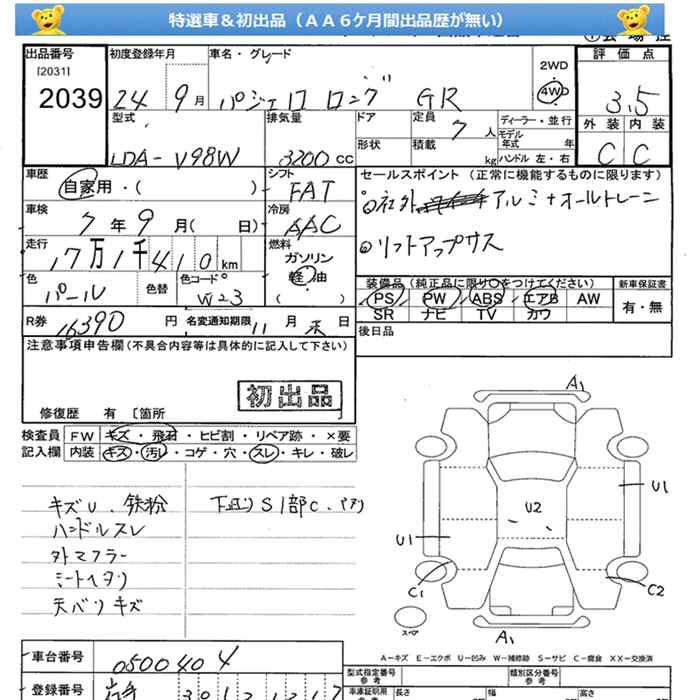 特選車&初出品（AA6ケ月間出品歴が無い）
出品番号
[2031]
2039
初度登録年月
24 9月
車名・グレード
パジェロ ロング GR
2WD
4WD
評価点
3.5
外装 内装
C C
型式
LDA-V98W
排気量
3200 CC
ドア
形状
定員 7人
積載 kg
ディーラー・並行
モデル年式 年
ハンドル 左・右
車歴
自家用・( )
シフト
FAT
セールスポイント（正常に機能するものに限ります）
社外 アルミ+オールトレーン
リフトアップサス
車検
7年9月( 日)
冷房
AAC
走行
17万1千410km
燃料
ガソリン
軽油
( )
色
パール
色替
色コードNo
W-23
装備品（純正品に限り○をつけてください）
PS PW ABS エアB AW
SR ナビ TV カワ
新車保証書
有・無
R券
16390円
名変通知期限 11月末日
後日品
注意事項申告欄(不具合内容等は具体的に記入して下さい)
初出品
修復歴 有〔箇所
検査員記入欄
FW キズ・飛石・ヒビ割・リペア跡・×要
内装 キズ・汚れ・コゲ・穴・スレ・キレ・破レ
キズU、鉄粉
ハンドルスレ
外マフラー
シートヘタリ
天バリキズ
下回りS1部C、
A1
U1
U2
U1
C1
C2
スペア
A1
A-キズ E-エクボ U-凹み W-補修跡 S-サビ C-腐食 XX-交換済
車台番号
0500404
型式指定番号
参考
類別区分番号
参考
登録番号
車庫証明用
長さ
幅
高さ